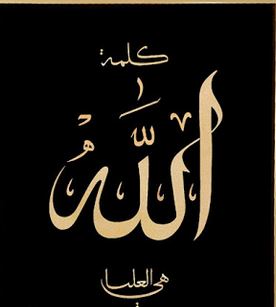 كلمة
اللهُ
هي العليا